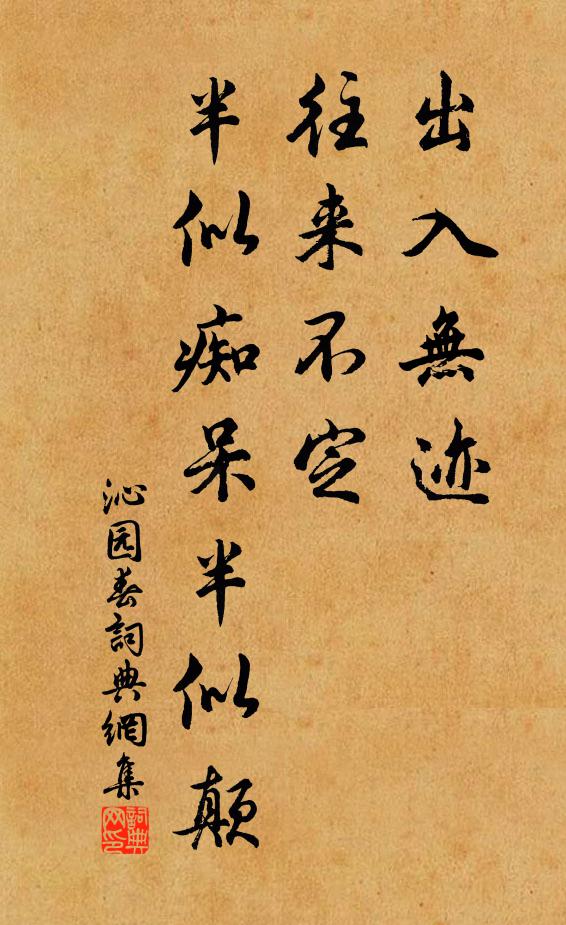 出入無迹
往来不定
半似痴呆半似颠
沁园春詞典網集
詞典网印